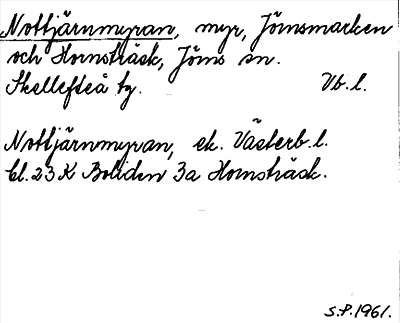 Nottjärnmyran, myr, Jörnsmarken
och Hornsträsk, Jörns sn.
Skellefteå tg. Vb.l.
Nottjärnmyran, ek. Västerb.l.
bl. 23 K Boliden 3a Hornsträsk.
S.P.1961.